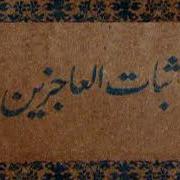 ثبات العاجزين